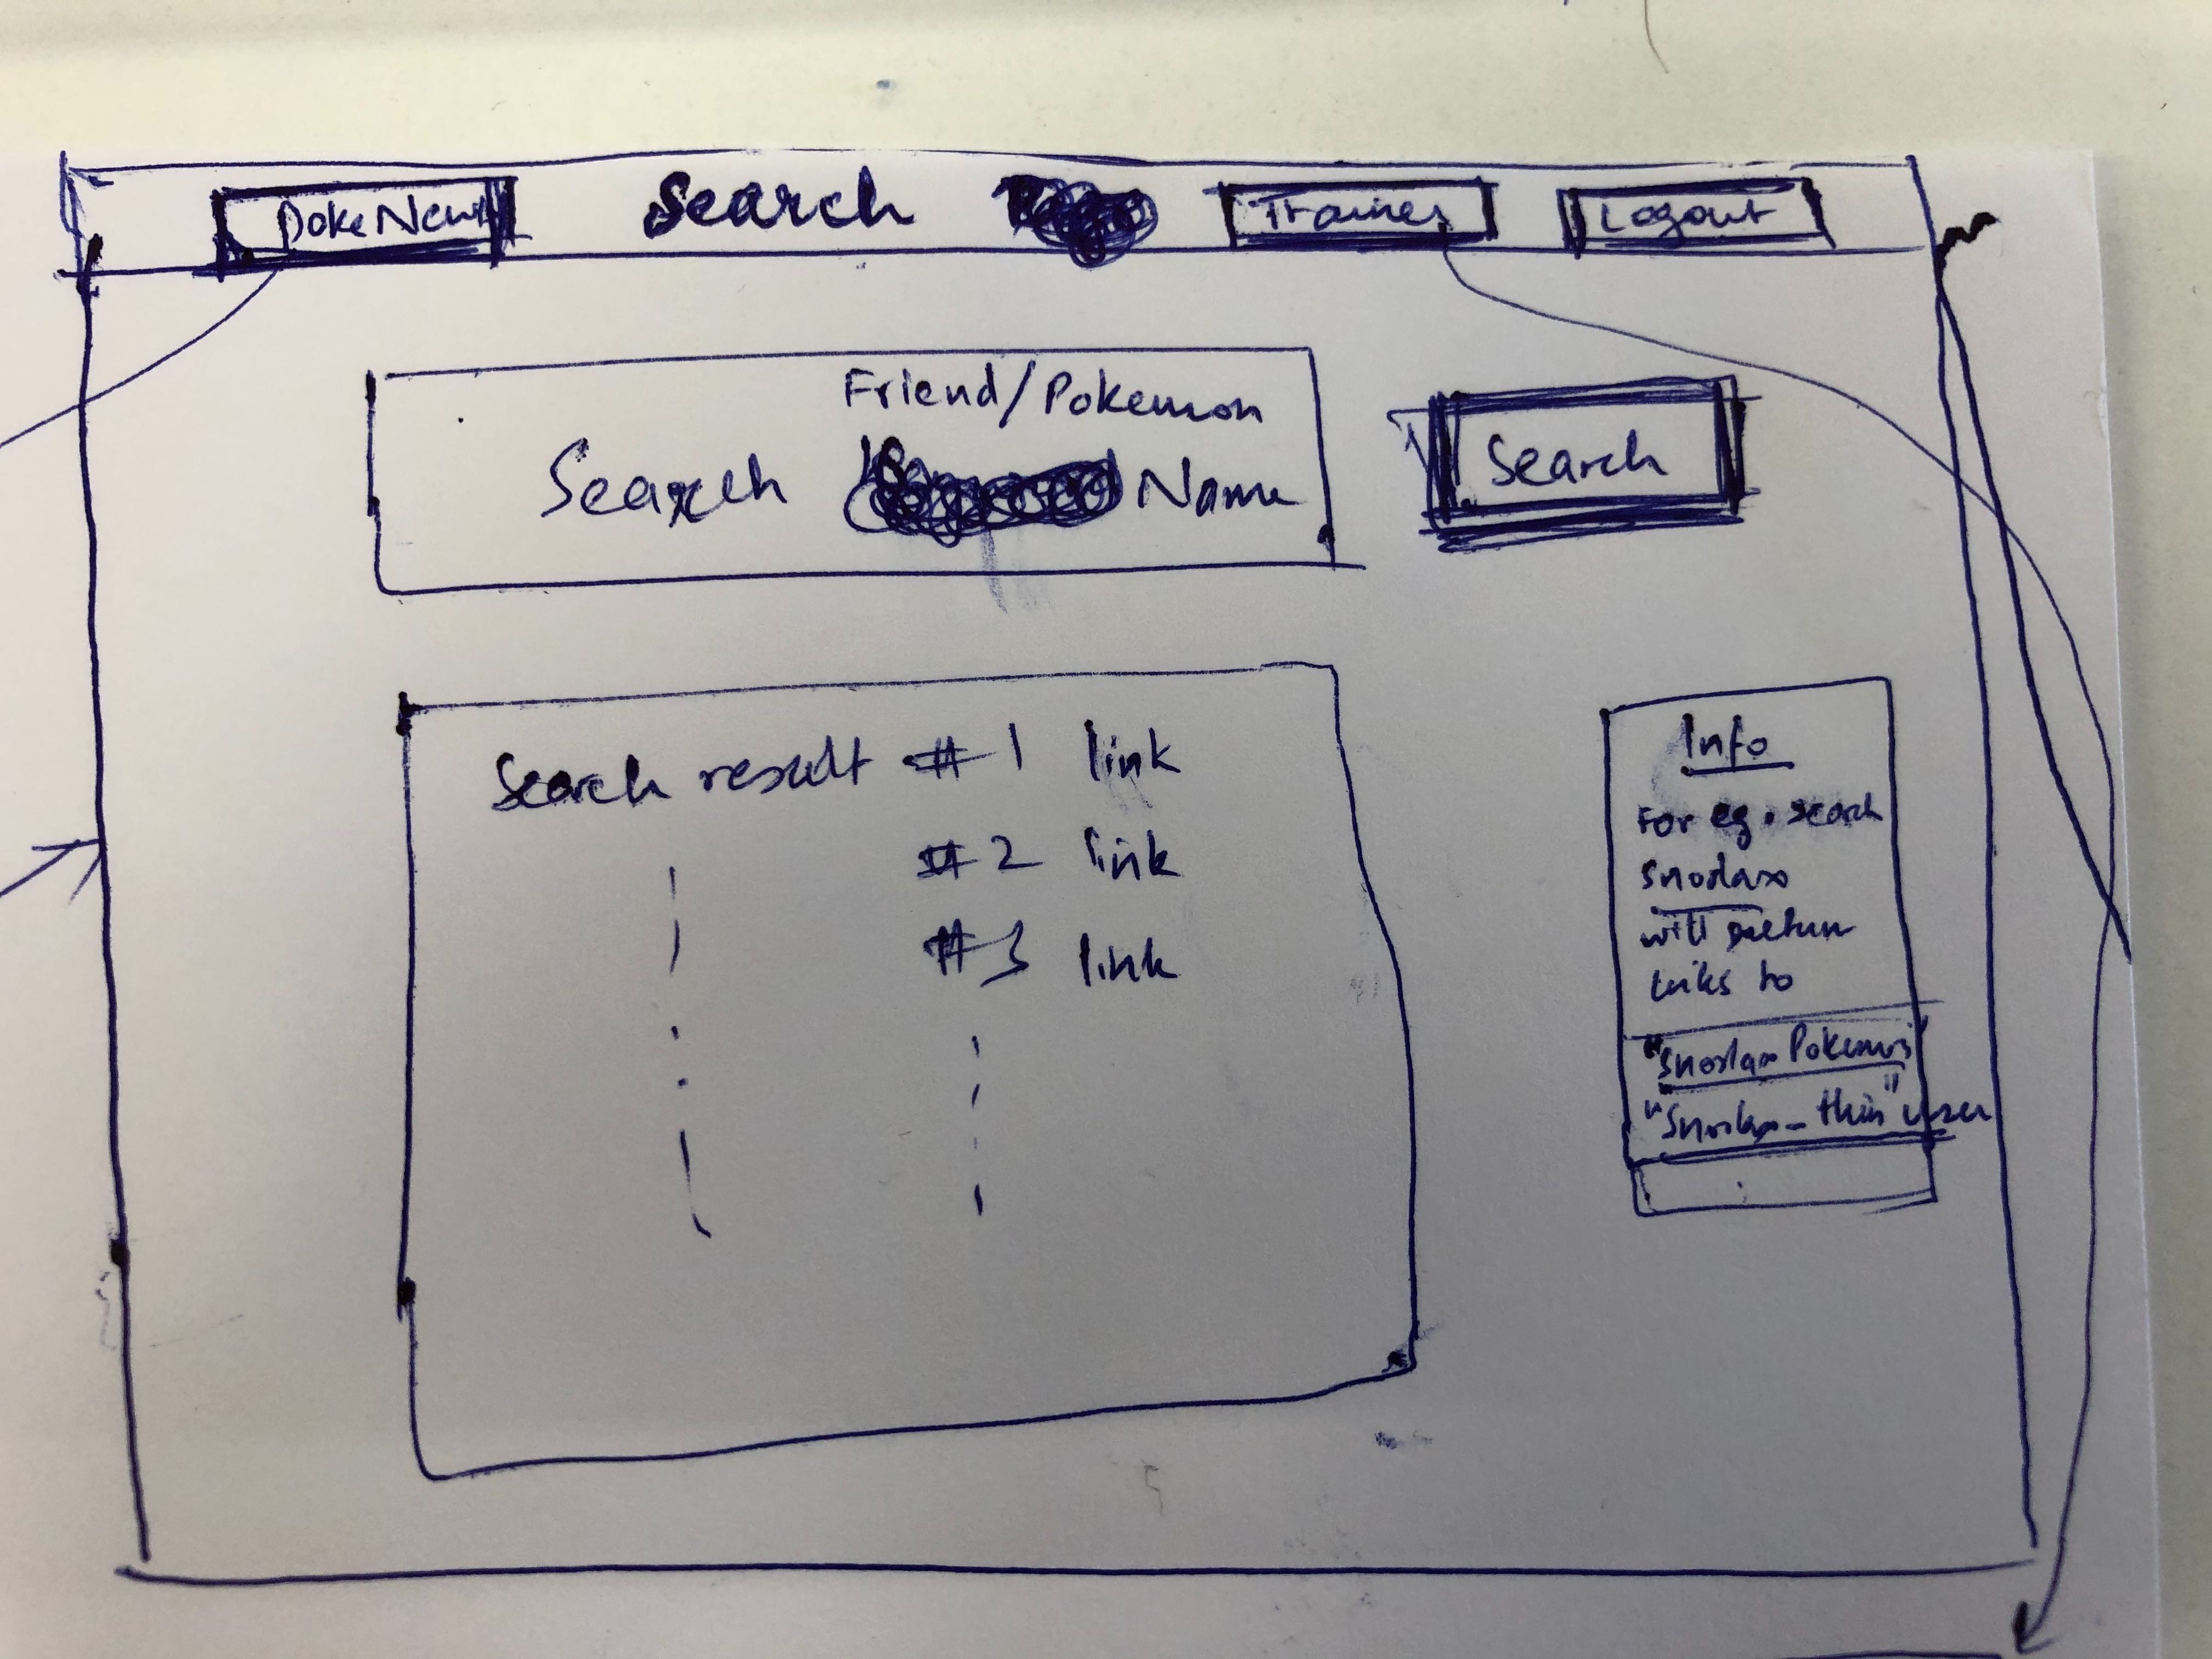 PokeNews Search Trainer Logout
Friend/Pokemon
Search Name
Search
Search result #1 link
#2 link
#3 link
Info
For eg. search
snorlax
will return
links to
"Snorlax Pokemon"
"Snorlax_thin" user